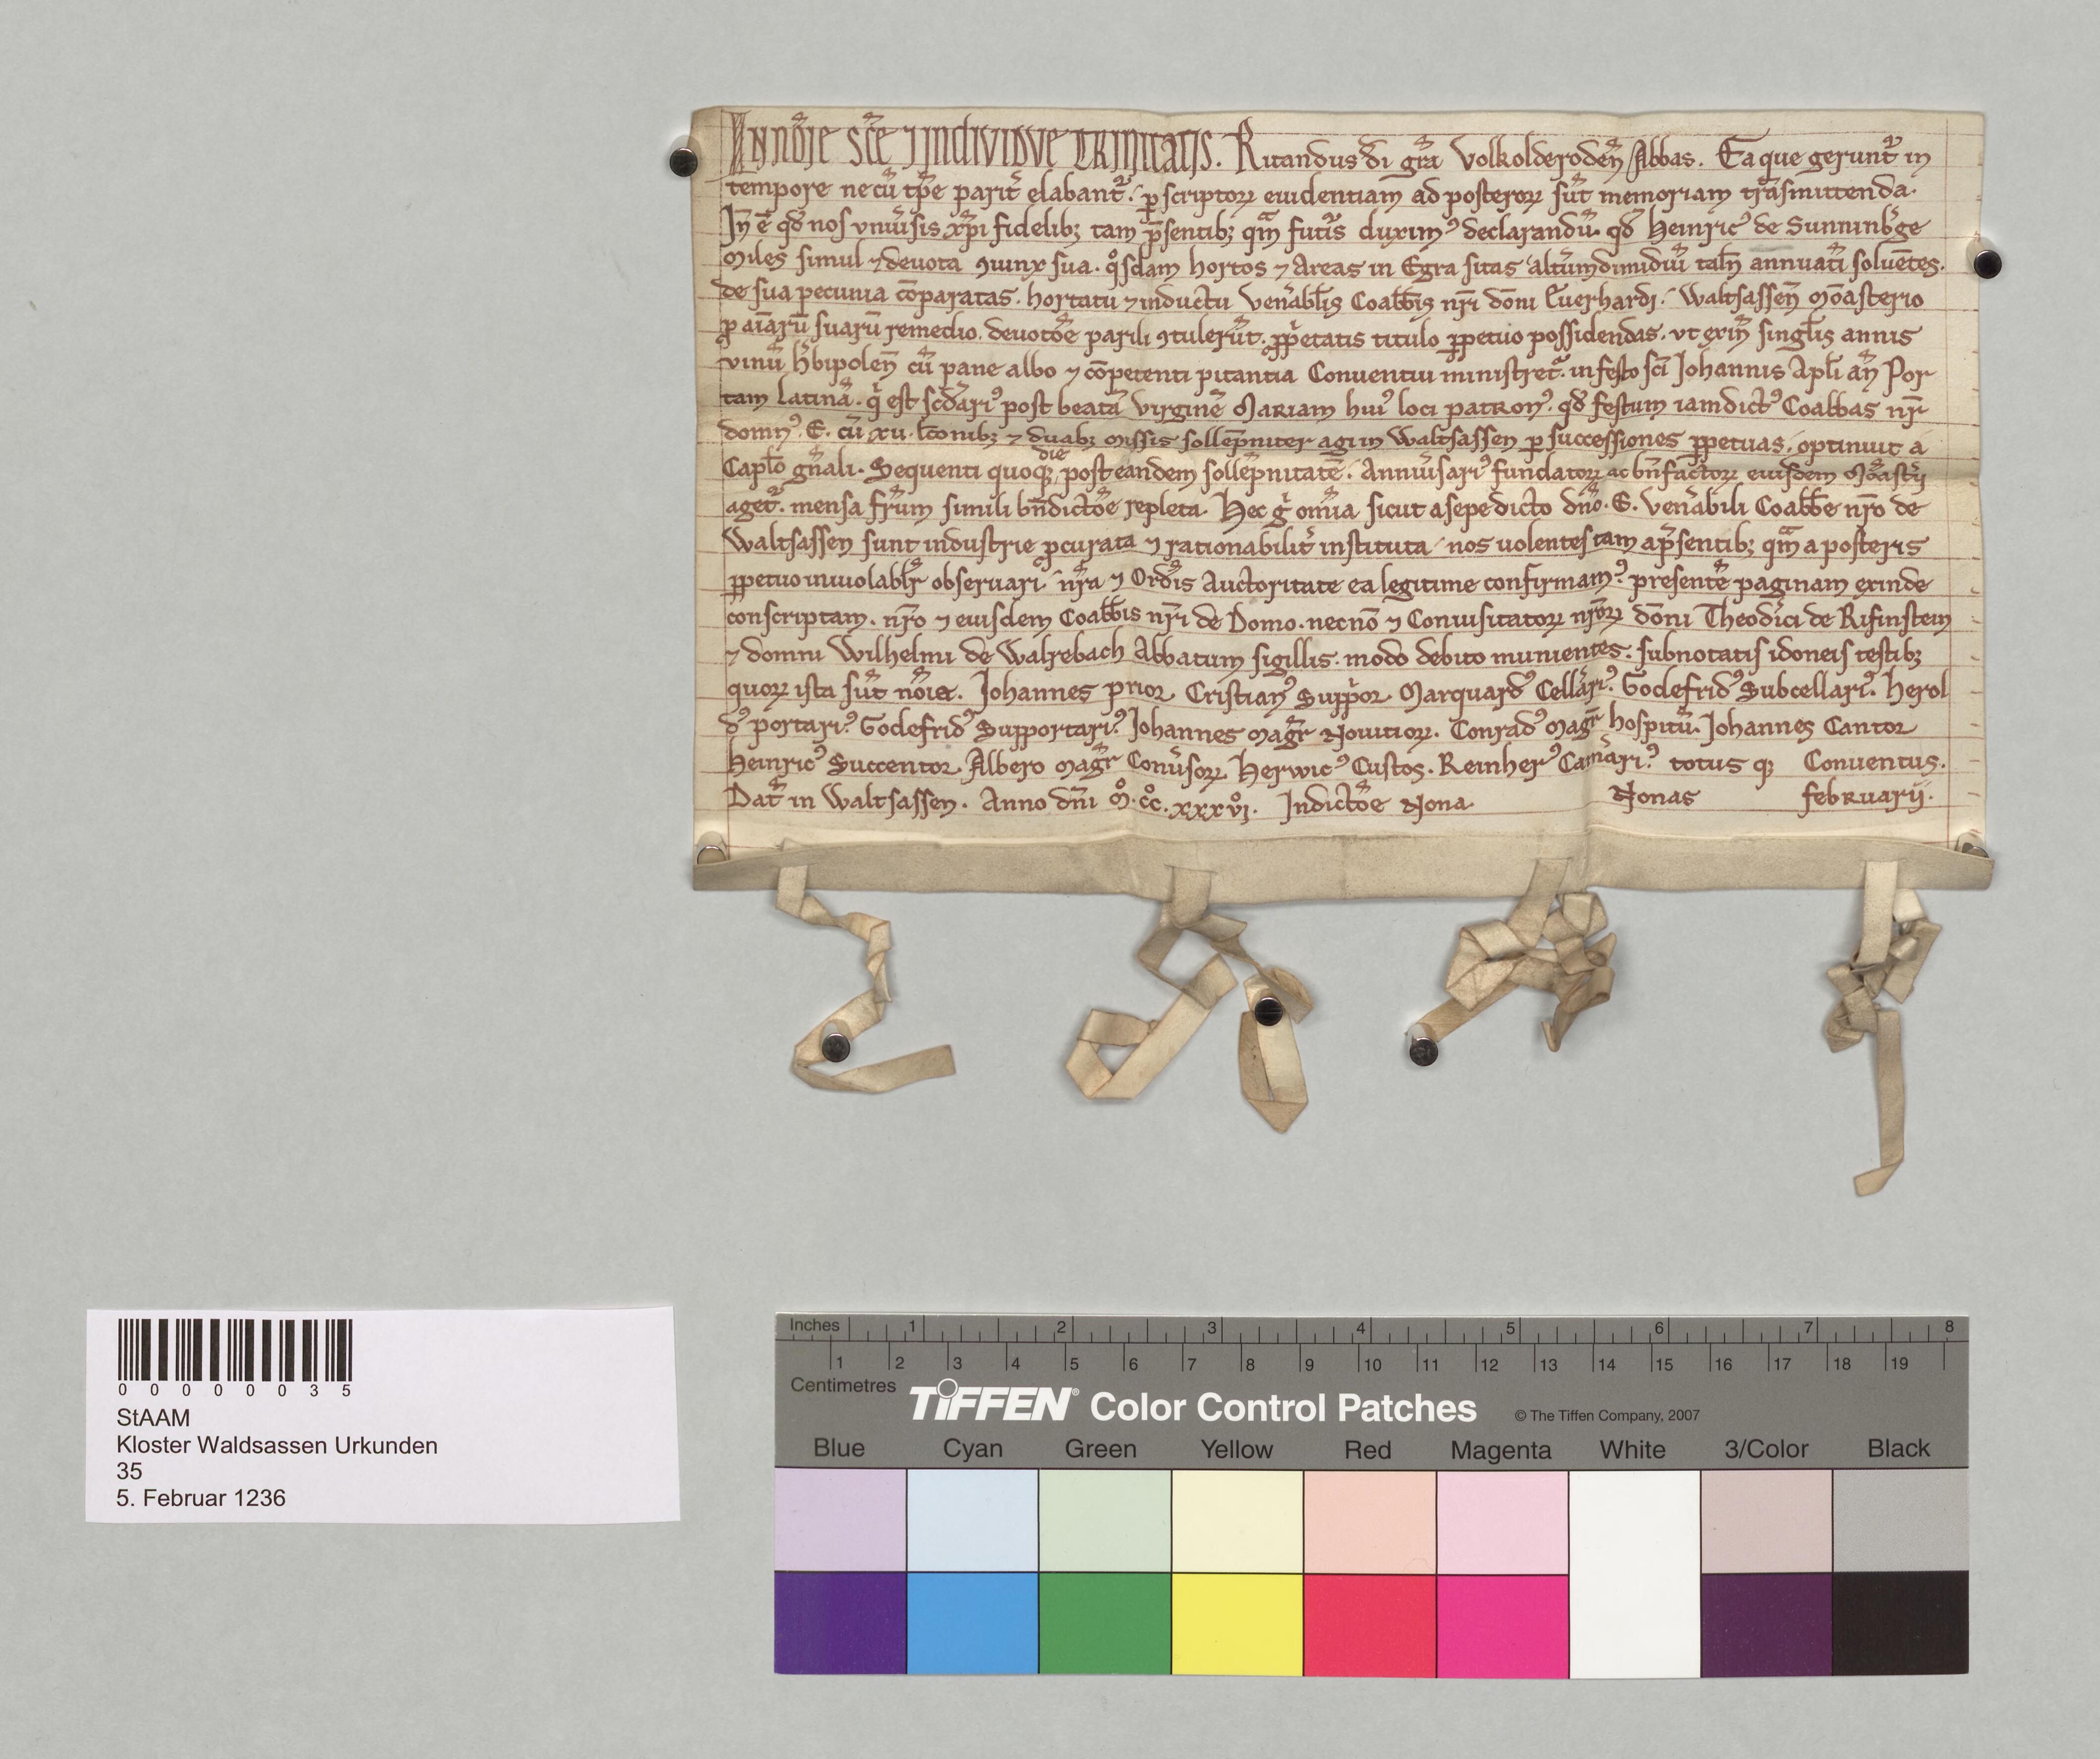 In nōie sc̄e ⁊ individve trinitatis. Ruandus di gr̄a Volkolderodeñ Abbas. Ea que gerunt᷑ in
tempore ne cū tp̄e parit᷑ elabant᷑. ꝑ scriptoꝝ euidentiam ad posteroꝝ sūt memoriam tr̄asmittenda.
In̄ ē qd̄ nos vniu᷑sis xp̄i fidelibꝫ tam p̄sentibꝫ qm̄ fut᷑is duximꝰ declarandū. qd̄ Heinricꝰ de Sunninb᷑ge
Miles simul ⁊ deuota ꝯiunx sua. qͦsdam hortos ⁊ Areas in Egra sitas alt᷑umdimidiū tal̄n annuati᷑ soluētes.
de sua pecunia cōparatas. hortatu ⁊ inductu ven᷑abl̄is Coabb̄is nr̄i dōni Eŭerhardi. Waltsasseñ Mōasterio
ꝓ aīarū suarū remedio. deuotōe parili ꝯtulerūt. ꝓp᷑etatis titulo ꝑpetuo possidendas. vt exin̄ singl̄is annis
vinū h᷑bipoleñ cū pane albo ⁊ cōpetenti pitantia Conventui ministret᷑. in festo sc̄i Johannis Apl̄i añ Por
tam Latinā. q᷑ est sc̄dariꝰ post beatā virginē Mariam huiꝰ loci patronꝰ. qd̄ festum iamdictꝰ Coabbas nr̄
domnꝰ. E. cū xii. lc̄onibꝫ ⁊ duabꝫ missis sollēpniter agi in Waltsassen ꝑ successiones ꝑpetuas. optinuit a
Capl̄o gn̄ali. Sequenti quoqꝫ die post eandem sollēpnitatē. Anniu᷑sariꝰ fundatoꝝ ac bn̄factoꝝ eiusdem Mōast᷑ii
aget᷑. mensa fr̄um simili bn̄dictōe repleta. Hec g᷑ om̄ia sicut a sepedicto dn̄o. E. ven᷑abili Coabb̄e nr̄o de
Waltsassen sunt industrie ꝓcurata ⁊ rationabilit᷑ instituta. nos uolentes tam a p᷑sentibꝫ qm̄ a posteris
ꝑpetuo inuiolabl̄r obseruari. nr̄a ⁊ Ord̄is Auctoritate ea legitime confirmamꝰ. presentē paginam exinde
conscriptam. nr̄o ⁊ eiusdem Coabb̄is nr̄i de Domo. necnō ⁊ Conuisitatoꝝ nr̄oꝝ dōni Theod᷑ici de Rifinstein
⁊ domni Wilhelmi de Walrebach Abbatum sigillis. modo debito munientes. subnotatis idoneis testibꝫ
quoꝝ ista sūt nōia. Johannes prior. Cristianꝰ Supp᷑or. Marquardꝰ Cellariꝰ. Godefridꝰ Subcellariꝰ. Herol
dꝰ portariꝰ. Godefridꝰ Supportariꝰ. Johannes magr̄ Nouitioꝝ. Conradꝰ magr̄ hospitū. Johannes Cantor
Heinricꝰ Succentor. Albero magr̄ Conu᷑soꝝ. Herwicꝰ Custos. Reinherꝰ Camariꝰ. totus qꝫ Conuentus.
Dat̄ in Waltsassen. Anno dn̄i Mͦ.ccͦ.xxxvjͦ. Indictōe Nona. Nonas februarij.
0 0 0 0 0 0 3 5
StAAM
Kloster Waldsassen Urkunden
35
5. Februar 1236
Inches 1 2 3 4 5 6 7 8
1 2 3 4 5 6 7 8 9 10 11 12 13 14 15 16 17 18 19
Centimetres
TIFFEN® Color Control Patches © The Tiffen Company, 2007
Blue Cyan Green Yellow Red Magenta White 3/Color Black